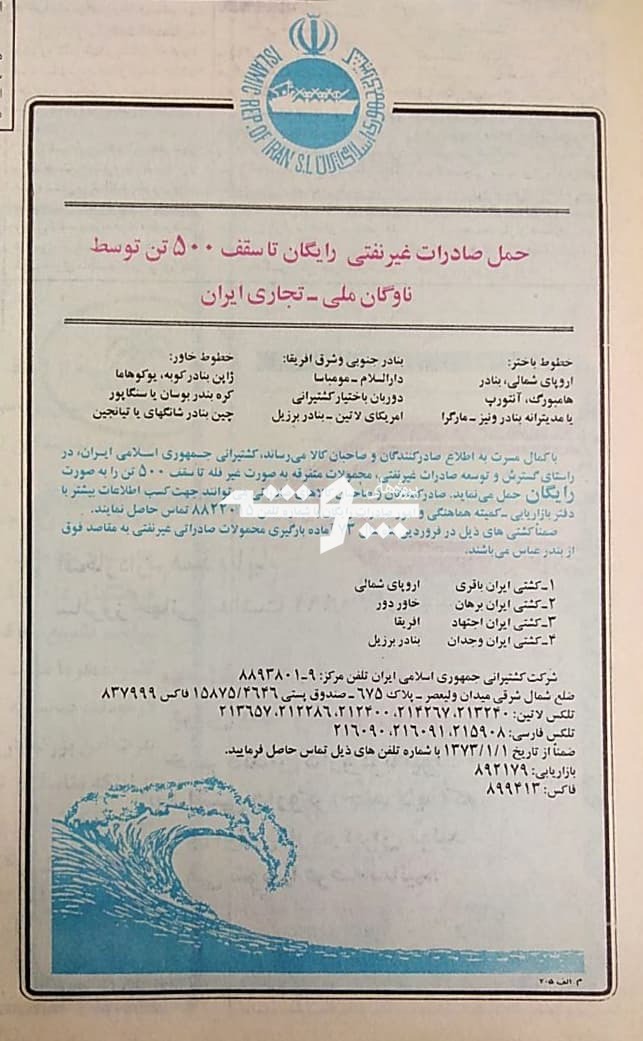 کشتیرانی جمهوری اسلامی ایران
ISLAMIC REP. OF IRAN S.L
حمل صادرات غیرنفتی رایگان تا سقف ۵۰۰ تن توسط
ناوگان ملی ــ تجاری ایران
خطوط باختر:
اروپای شمالی، بنادر
هامبورگ، آنتورپ
یا مدیترانه بنادر ونیز ــ مارگرا
بنادر جنوبی وشرق افریقا:
دارالسلام ــ مومباسا
دوربان باختیار کشتیرانی
امریکای لاتین ــ بنادر برزیل
خطوط خاور:
ژاپن بنادر کوبه، یوکوهاما
کره بندر بوسان یا سنگاپور
چین بنادر شانگهای یا تیانجین
با کمال مسرت به اطلاع صادرکنندگان و صاحبان کالا می‌رساند، کشتیرانی جمهوری اسلامی ایران، در
راستای گسترش و توسعه صادرات غیرنفتی، محمولات متفرقه به صورت غیر فله تا سقف ۵۰۰ تن را به صورت
رایگان حمل می‌نماید. توانند جهت کسب اطلاعات بیشتر با
دفتر بازاریابی ــ کمیته هماهنگی و امور صادرات رایگان با شماره تلفن ۸۸۲۲۰ تماس حاصل نمایند.
ضمناً کشتی های ذیل در فروردین آماده بارگیری محمولات صادراتی غیرنفتی به مقاصد فوق
از بندر عباس می‌باشند.
پیوست
۱ــ کشتی ایران باقری اروپای شمالی
۲ــ کشتی ایران برهان خاور دور
۳ــ کشتی ایران اجتهاد افریقا
۴ــ کشتی ایران وجدان بنادر برزیل
شرکت کشتیرانی جمهوری اسلامی ایران تلفن مرکز: ۹ــ۸۸۹۳۸۰۱
ضلع شمال شرقی میدان ولیعصر ــ پلاک ۶۷۵ ــ صندوق پستی ۱۵۸۷۵/۴۶۴۶ فاکس ۸۳۷۹۹۹
تلکس لاتین: ۲۱۳۲۴۰، ۲۱۴۲۶۷، ۲۱۲۴۰۰، ۲۱۲۲۸۶، ۲۱۳۶۵۷
تلکس فارسی: ۲۱۵۹۰۸، ۲۱۶۰۹۱، ۲۱۶۰۹۰
ضمناً از تاریخ ۱۳۷۳/۱/۱ با شماره تلفن های ذیل تماس حاصل فرمایید.
بازاریابی: ۸۹۲۱۷۹
فاکس: ۸۹۹۴۱۳
م الف ۲۰۵